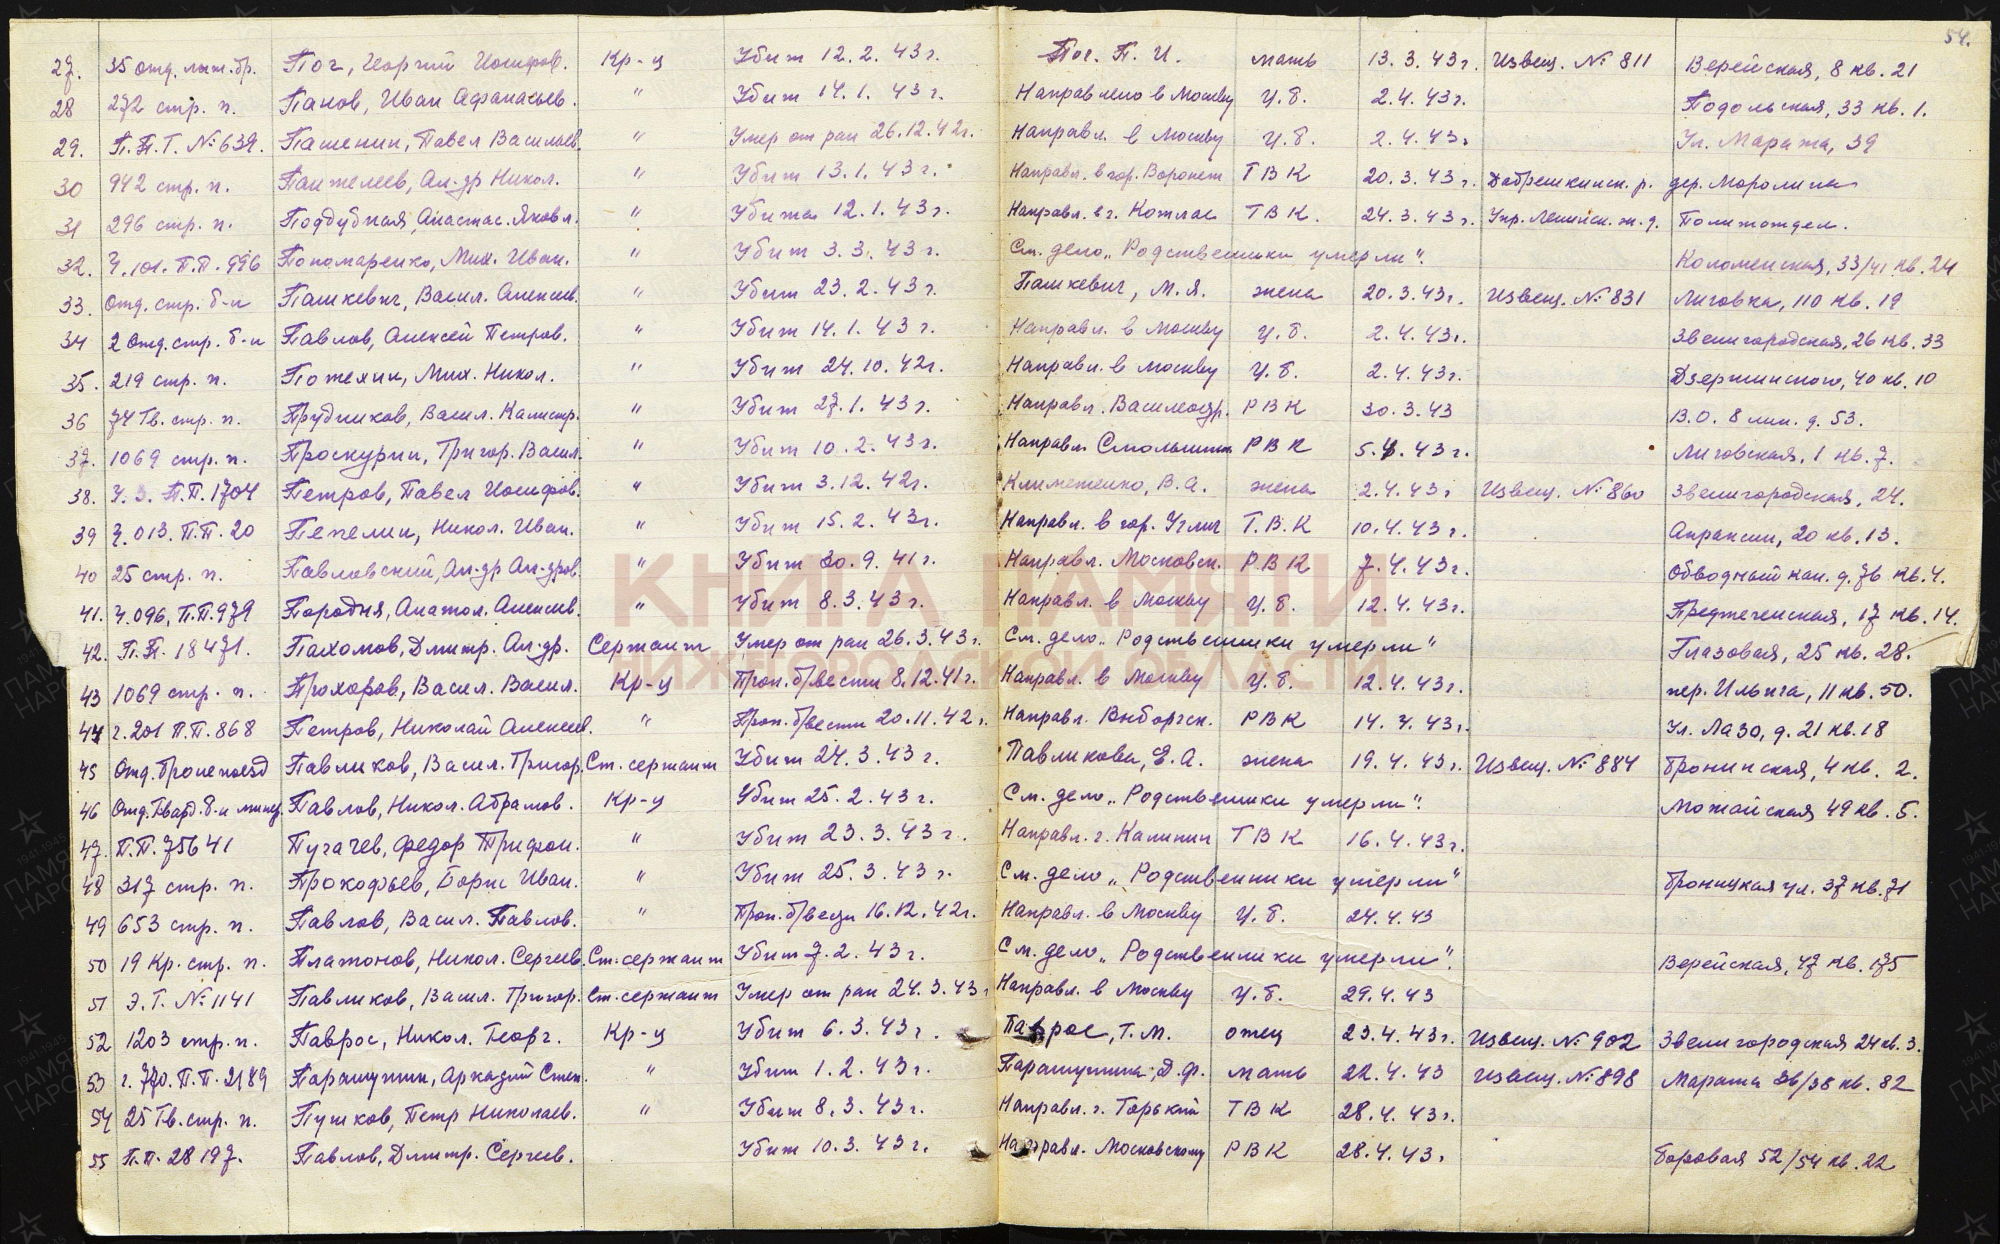 54.
27. 35 отд. лыж. бр. Пог, Георгий Иосифов. Кр-ц Убит 12.2.43г. Пог. П. И. мать 13.3.43г. Извещ. № 811 Верейская, 8 кв. 21
28 272 стр. п. Панов, Иван Афанасьев. " Убит 14.1.43г. Направлено в Москву Ц.б. 2.4.43г. Подольская, 33 кв. 1.
29. П.П.Г. № 639. Пашенин, Павел Васильев. " Умер от ран 26.12.42г. Направл. в Москву Ц.б. 2.4.43г. Ул. Марата, 39
30 942 стр. п. Пантелеев, Ал-др Никол. " Убит 13.1.43г. Направл. в гор. Воронеж ТВК 20.3.43г. р. дер.
31 296 стр. п. Поддубная, Анастас. Яковл. " Убита 12.1.43г. Направл. в г. Котлас ТВК. 24.3.43г. Упр. Ленинск. ж.д. Политотдел.
32. Ч.101. П.П. 996 Пономаренко, Мих. Иван. " Убит 3.3.43г. См. дело „Родственники умерли". Коломенская, 33/41 кв. 24
33. Отд. стр. б-н Пашкевич, Васил. Алексеев. " Убит 23.2.43г. Пашкевич, М.Я. жена 20.3.43г. Извещ. № 831 Лиговка, 110 кв. 19
34 2 Отд. стр. б-н Павлов, Алексей Петров. " Убит 14.1.43г. Направл. в Москву Ц.б. 2.4.43г. Звенигородская, 26 кв. 33
35. 219 стр. п. Потехин, Мих. Никол. " Убит 24.10.42г. Направл. в Москву Ц.б. 2.4.43г. Дзержинского, 40 кв. 10
36 74 Гв. стр. п. Прудников, Васил. Калистр. " Убит 27.1.43г. Направл. Василеостр. РВК 30.3.43 В.О. 8 лин. д. 53.
37. 1069 стр. п. Проскурин, Григор. Васил. " Убит 10.2.43г. Направл. Смольнинск РВК 5.4.43г. Лиговская, 1 кв. 7.
38. П.П. 1704 Петров, Павел Иосифов. " Убит 3.12.42г. Климетенко, В.А. жена 2.4.43г Извещ. № 860 Звенигородская, 24.
39 Ч.013. П.П. 20 Пепелин, Никол. Иван. " Убит 15.2.43г. Направл. в гор. Углич Т.В.К 10.4.43г. Апраксин, 20 кв. 13.
40 25 стр. п. Павловский, Ал-др Ал-дров. " Убит 30.9.41г. Направл. Московск. РВК 7.4.43г. Обводный кан. д. 76 кв. 4.
41. Ч.096, П.П. 979 Породня, Анатол. Алексеев. " Убит 8.3.43г. Направл. в Москву Ц.б. 12.4.43г. Предтеченская, 17 кв. 14.
42. П.П. 18471. Пахомов, Дмитр. Ал-др. Сержант Умер от ран 26.3.43г. См. дело „Родственники умерли" Глазовая, 25 кв. 28.
43 1069 стр. п. Прохоров, Васил. Васил. Кр-ц Проп. б/вести 8.12.41г. Направл. в Москву Ц.б. 12.4.43г. пер. Ильича, 11 кв. 50.
44 ч. 201 П.П. 868 Петров, Николай Алексеев. " Проп. б/вести 20.11.42г. Направл. Выборгск. РВК 14.4.43г. Ул. Лазо, д. 21 кв. 18
45 Отд. бронепоезд Павликов, Васил. Григор. Ст. сержант Убит 24.3.43г. Павликова, Е.А. жена 19.4.43г. Извещ. № 884 Бронницкая, 4 кв. 2.
46 Отд. Гвард. б-н миним. Павлов, Никол. Абрамов. Кр-ц Убит 25.2.43г. См. дело „Родственники умерли". Можайская 49 кв. 5.
47. П.П. 75641 Пугачев, Федор Трифон. " Убит 23.3.43г. Направл. г. Калинин ТВК 16.4.43г.
48 317 стр. п. Прокофьев, Борис Иван. " Убит 25.3.43г. См. дело „Родственники умерли" Броницкая ул. 37 кв. 71
49 653 стр. п. Павлов, Васил. Павлов. " Проп. б/вести 16.12.42г. Направл. в Москву Ц.б. 24.4.43
50 19 Кр. стр. п. Платонов, Никол. Сергеев. Ст. сержант Убит 7.2.43г. См. дело „Родственники умерли". Верейская, 47 кв. 175
51 Э.Г. № 1141 Павликов, Васил. Григор. Ст. сержант Умер от ран 24.3.43г Направл. в Москву Ц.б. 29.4.43
52 1203 стр. п. Паврос, Никол. Георг. Кр-ц Убит 6.3.43г. Паврос, Г.М. отец 23.4.43г. Извещ. № 902 Звенигородская 24 кв. 3.
53 ч. 770. П.П. 2189 Парашутин, Аркадий Степ. " Убит 1.2.43г. Парашутина, Д.Ф. мать 22.4.43 Извещ. № 898 Марата 36/38 кв. 82
54 25 Гв. стр. п. Пушков, Петр Николаев. " Убит 8.3.43г. Направл. г. Горький ТВК 28.4.43г.
55 П.П. 28197. Павлов, Дмитр. Сергеев. Убит 10.3.43г. Направл. Московскому РВК 28.4.43г. Боровая 52/54 кв. 22
КНИГА ПАМЯТИ
НИЖЕГОРОДСКОЙ ОБЛАСТИ